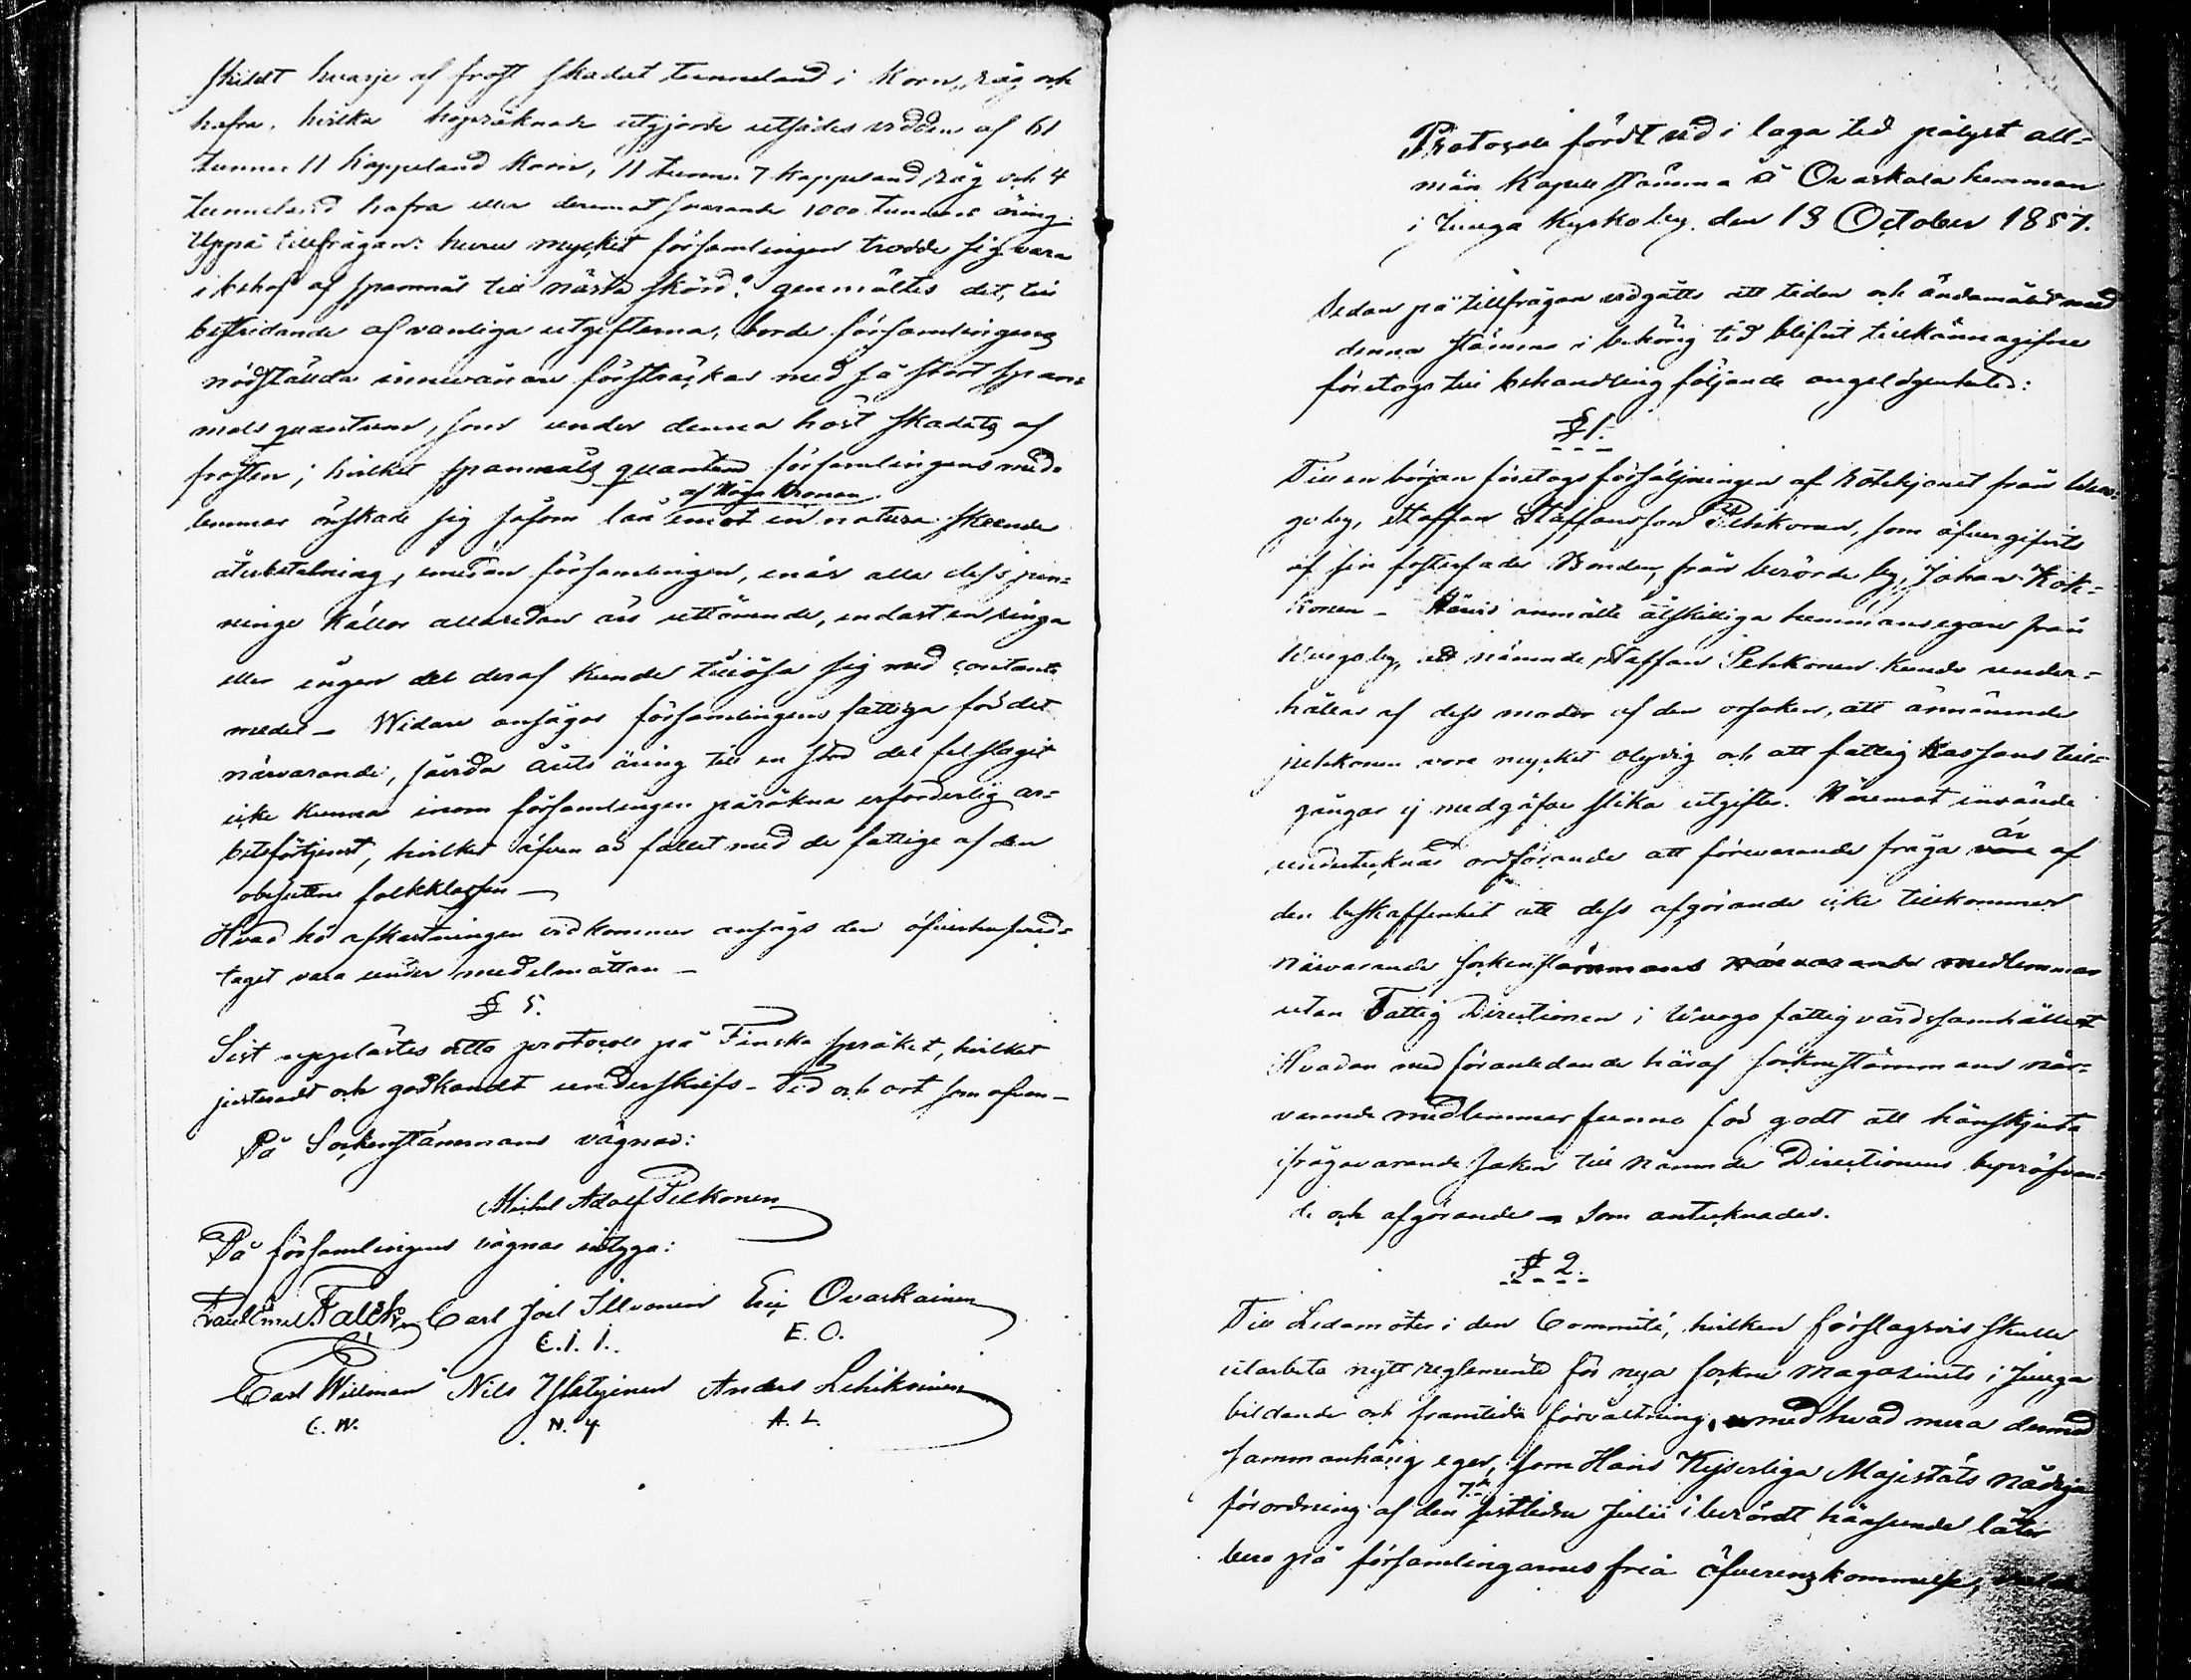 skildt hvarje af frost skadat tunneland i Korn, råg och
hafra, hvilka hopräknade utgjorde utsädes vidden af 61
tunne 11 kappeland Korn, 11 tunne 7 kappeland råg och 4
tunneland hafra eller deremot svarande 1000 tunnors äring.
Uppå tillfrågan: huru mycket församlingen trodde sig vara
i behof af spannmål till nästa skörd? genmältes det, till
bestridande af vanliga utgifterna, borde församlingens
nödställda innevånare försträckas med så stort span-
mols quantum, som under denna höst skadats af
frosten; hvilket spanmåls quantum församlingens med-
lemmar önskade sig såsom lån af Höga Kronan emot in natura skeende
återbetalning, emedan församlingen, enär alla dess pen-
ninge källor allaredan äro uttömde, endast en ringa
eller ingen del deraf kunde tillösa sig med contante
medel _ Widare ansågos församlingens fattiga för det
närvarande, särda årets äring till en stor del felslagit
icke kunna inom församlingen påräkna erforderlig ar-
betsförtjenst, hvilket äfven är fallet med de fattige af den
obesuttne folkklassen _
Hvad hö afkastningen vidkommer ansågs den öfverhufvud-
taget vara under medelmåttan _
§ 5.
Sist upplästes detta protocoll på Finska språket, hvilket
justeradt och godkändt underskrefs _ Tid och ort som ofvan _
På Sockenstämmans vägnar:
Michel Adolf Pelkonen
På församlingens vägnar intyga:
Falck Carl Joel Illvonen Eric Ovaskainen
C. I. I. E. O.
Carl Willman Nils Yletyinen Anders Lehikoinen
C. W. N. Y A. L.
Protocoll fördt vid i laga tid pålyst all-
män Kapell stämma å Ovaskala hemman
i Juuga Kyrkoby den 18 October 1857.
Sedan på tillfrågan vidgåtts att tiden och ändamålet med
denna stämma i behörig tid blifvit tillkännagifne
företogs till behandling följande angelägenheter:
§ 1.
Till en början företogs försäljningen af rotehjonet från
by, Staffan Staffansson Pehkonen, som öfvergifvits
af sin fosterfader Bonden, från berörde by, Johan Kok-
konen _ Härvid anmälte åtskilliga hemmansegare från
by, att nämnde Staffan Pehkonen kunde under-
hållas af dess moder af den orsaken, att ännämnde
Pehkonen vore mycket olydig och att fattig kassans till-
gångar ej medgåfve slika utgifter. Häremot invände
undertecknad ordförande att förevarande fråga vore är af
den beskaffenhet att dess afgörande icke tillkommer
närvarande sockenstämmans närvarande medlemmar
utan Fattig Directionen i fattigvårdssamhället
Hvadan med föranledande häraf sockenstämmans när-
varande medlemmar funno för godt att hänskjuta
ifrågavarande saken till nämnde Directionens bepröfvan-
de och afgörande _ Som antecknades.
§ 2.
Till Ledamöter i den Committé, hvilken förslagsvis skulle
utarbeta nytt reglemente för nya sockne magasinets i Juuga
bildande och framtida förvaltning, med hvad mera dermed
sammanhäng eger, som Hans Kejserliga Majestäts Nådiga
förordning af den 7de sistledne Julii i berördt hänseende låter
bero på församlingarnes fria öfverenskommelse,